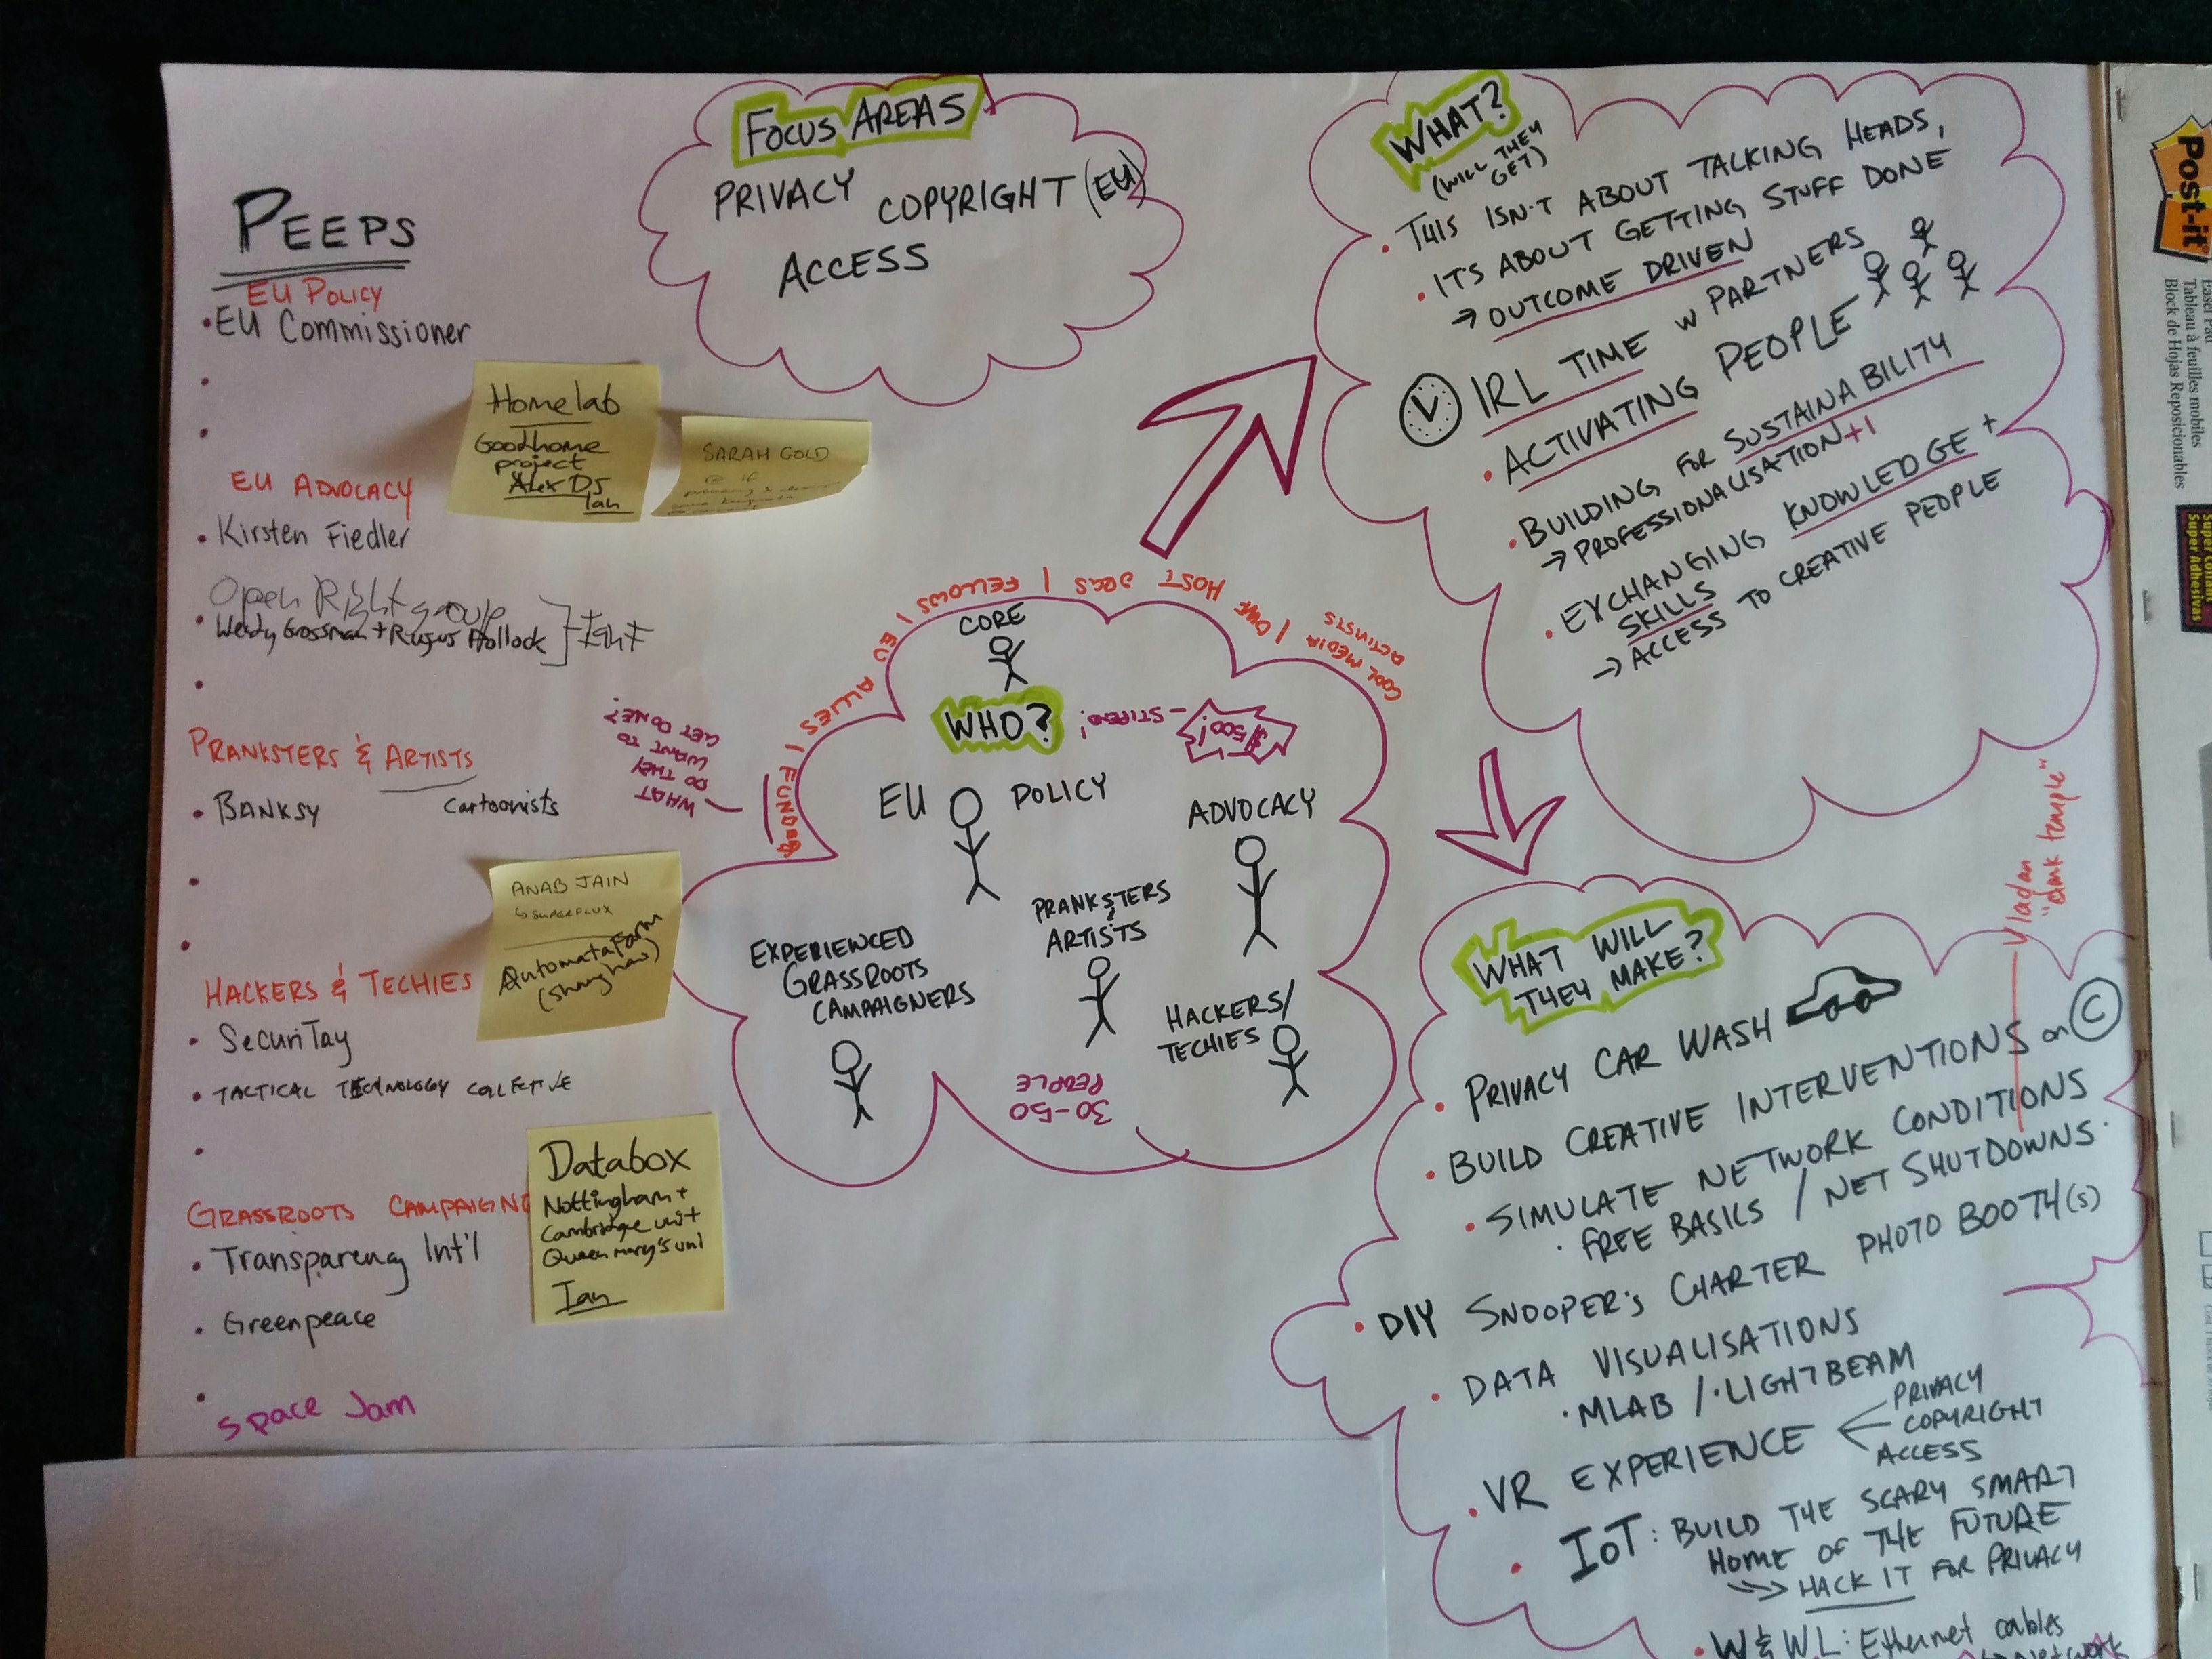 PEEPS
EU POLICY
• EU Commissioner
•
•
EU ADVOCACY
• Kirsten Fiedler
Open Right group
• Wendy Grossman + Rufus Pollock
•
PRANKSTERS & ARTISTS
• BANKSY
Cartoonists
•
•
HACKERS & TECHIES
• SecuriTay
• TACTICAL TECHNOLOGY COLLECTIVE
•
GRASSROOTS CAMPAIGN
• Transparency Int'l
• Greenpeace
•
Space Jam
Homelab
Goodhome
project
Alex DS
Ian
SARAH GOLD
@ if
ANAB JAIN
↳ SUPERFLUX
Automata Farm
(Shanghai)
Databox
Nottingham +
Cambridge unit
Queen mary's uni
Ian
FOCUS AREAS
PRIVACY COPYRIGHT (EU)
ACCESS
FUNDERS | EU ALLIES | FELLOWS | HOST ORGS | COOL MEDIA
ACTIVISTS
WHAT
DO THEY
WANT TO
GET DONE?
CORE
WHO?
$1500!
– STIPEND!
EU POLICY
ADVOCACY
PRANKSTERS
&
ARTISTS
EXPERIENCED
GRASSROOTS
CAMPAIGNERS
HACKERS/
TECHIES
30-50
PEOPLE
WHAT?
(WILL THEY
GET)
• THIS ISN'T ABOUT TALKING HEADS,
• IT'S ABOUT GETTING STUFF DONE
→ OUTCOME DRIVEN
IRL TIME W PARTNERS
• ACTIVATING PEOPLE
• BUILDING FOR SUSTAINABILITY
→ PROFESSIONALISATION +1
• EXCHANGING KNOWLEDGE +
SKILLS
→ ACCESS TO CREATIVE PEOPLE
WHAT WILL
THEY MAKE?
Vladan
"dmk temple"
• PRIVACY CAR WASH
• BUILD CREATIVE INTERVENTIONS on ©
• SIMULATE NETWORK CONDITIONS
• FREE BASICS / NET SHUTDOWNS
• DIY SNOOPER'S CHARTER PHOTO BOOTH(S)
• DATA VISUALISATIONS
• MLAB / • LIGHTBEAM
• VR EXPERIENCE
PRIVACY
COPYRIGHT
ACCESS
• IoT: BUILD THE SCARY SMART
HOME OF THE FUTURE
→ HACK IT FOR PRIVACY
• W&WL: Ethernet cables
Post-it
Easel Pad
Tableau à feuilles mobiles
Block de Hojas Reposicionables
Super Adhesivas